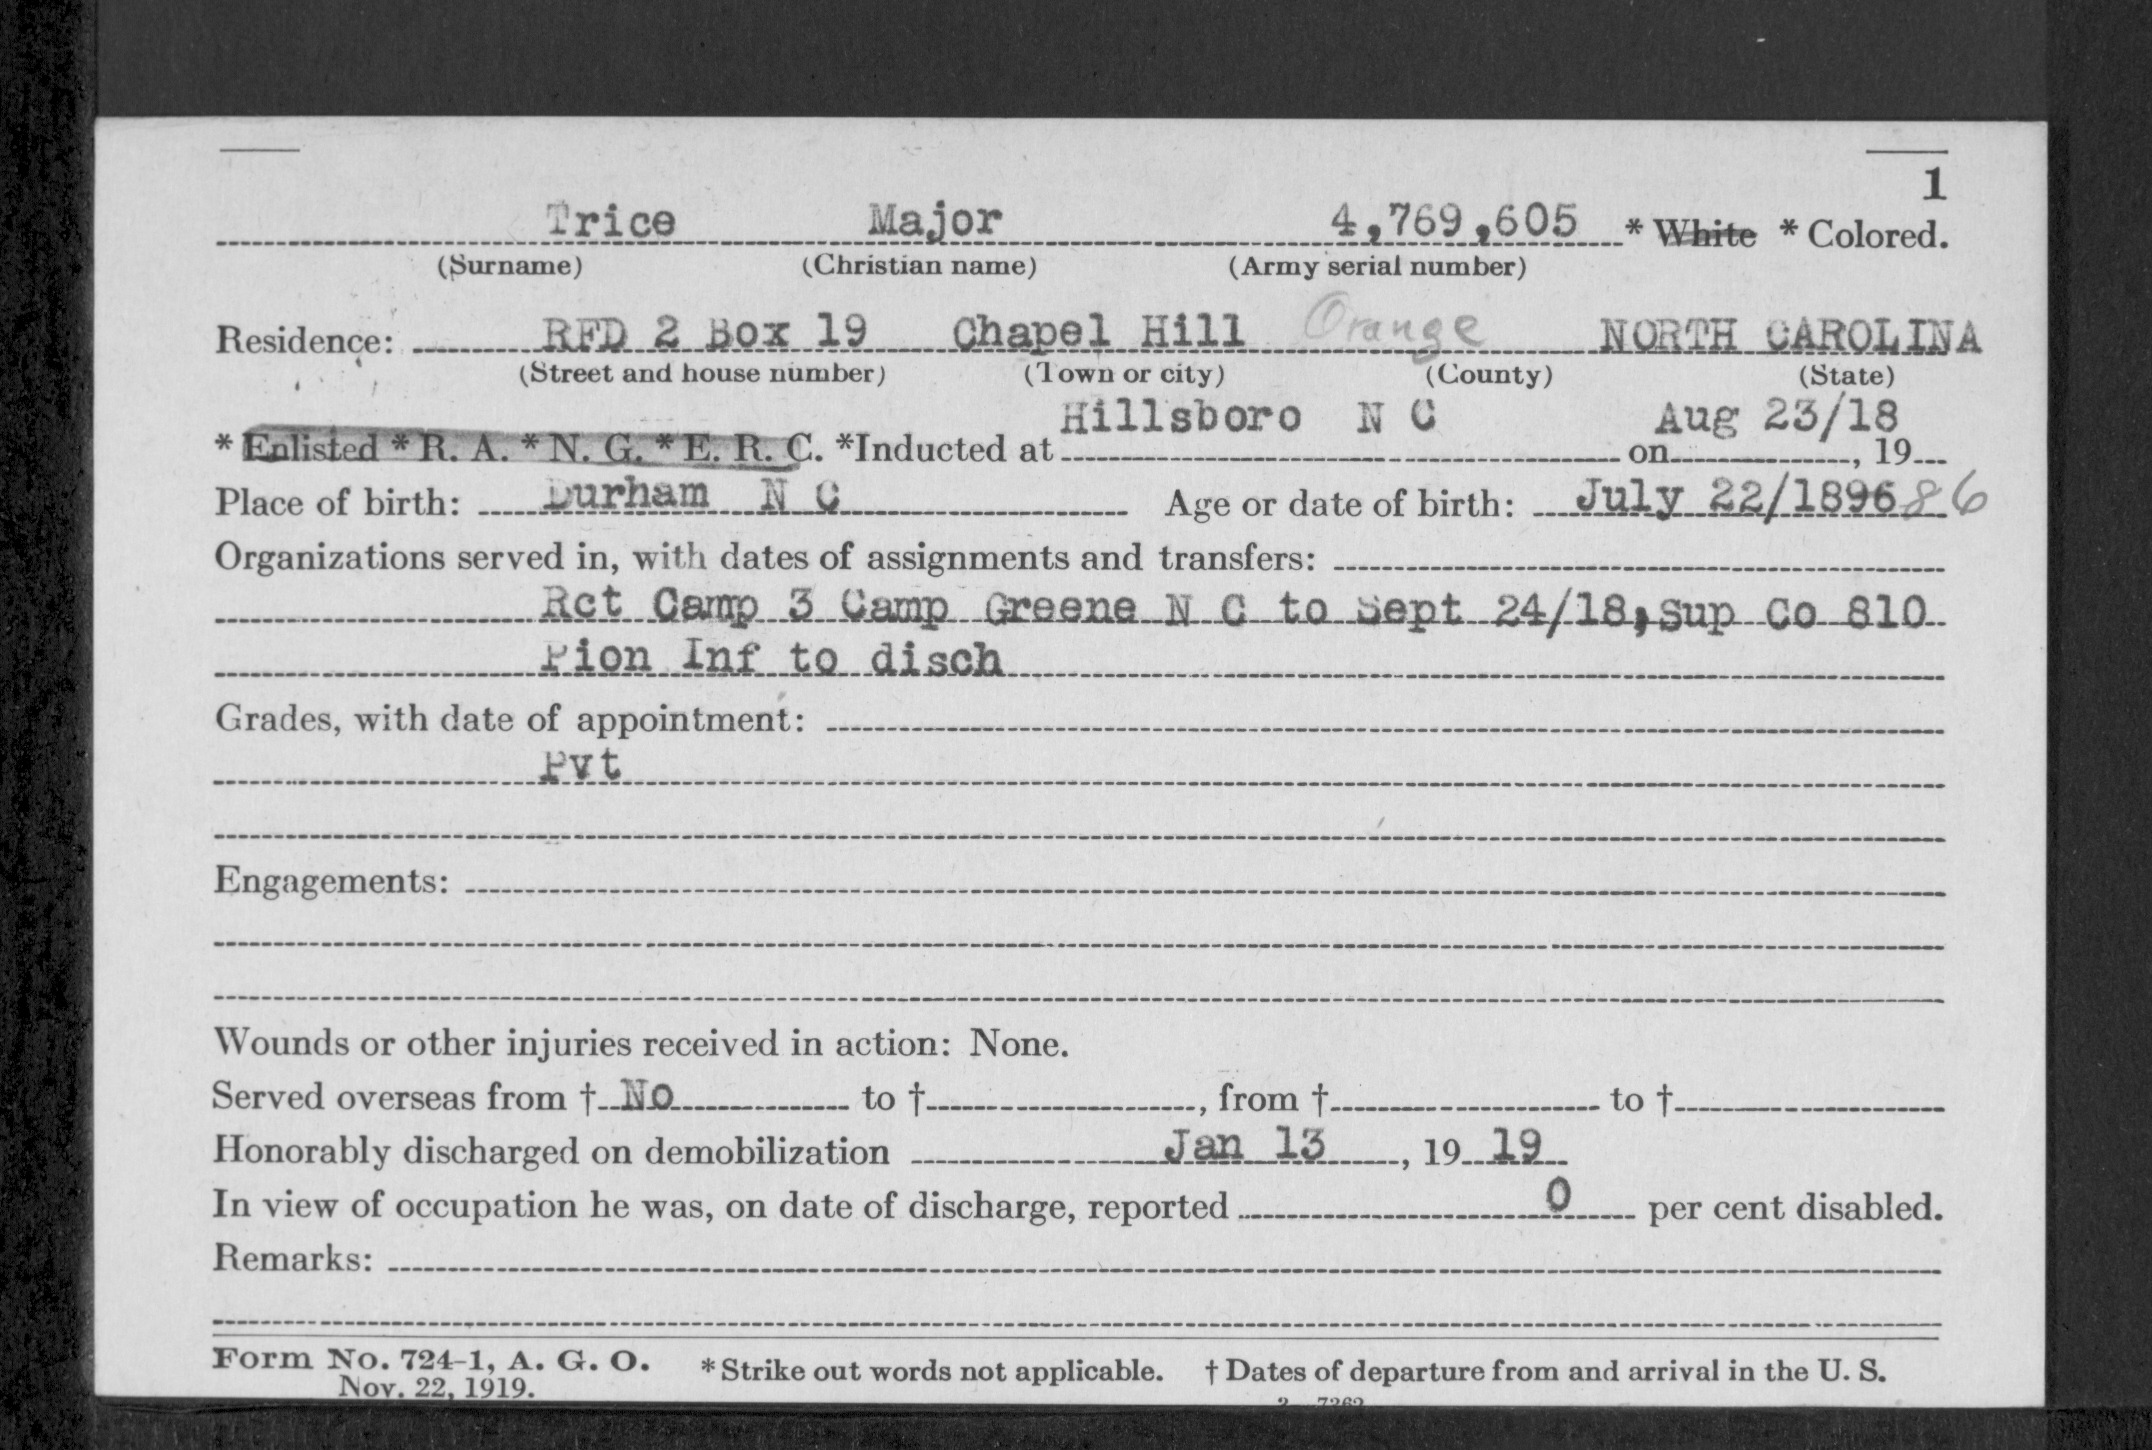 1
Trice Major 4,769,605 * White * Colored.
(Surname) (Christian name) (Army serial number)
Residence: RFD 2 Box 19 Chapel Hill Orange NORTH CAROLINA
(Street and house number) (Town or city) (County) (State)
Hillsboro N C Aug 23/18
* Enlisted * R. A. * N. G. * E. R. C. *Inducted at on , 19
Place of birth: Durham N C Age or date of birth: July 22/1896 86
Organizations served in, with dates of assignments and transfers:
Rct Camp 3 Camp Greene N C to Sept 24/18, Sup Co 810
Pion Inf to disch
Grades, with date of appointment:
Pvt
Engagements:
Wounds or other injuries received in action: None.
Served overseas from † No to † , from † to †
Honorably discharged on demobilization Jan 13 , 19 19
In view of occupation he was, on date of discharge, reported 0 per cent disabled.
Remarks:
Form No. 724-1, A. G. O. * Strike out words not applicable. † Dates of departure from and arrival in the U. S.
Nov. 22, 1919.